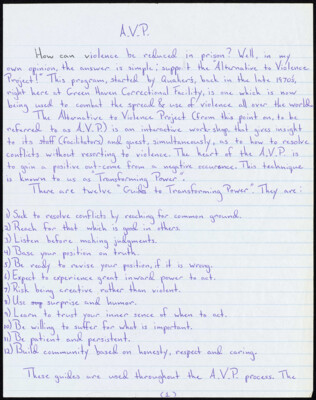 A.V.P.
How can violence be reduced in prison? Well, in my
own opinion, the answer is simple; support the Alternative to Violence
Project!" This program, started by Quakers, back in the late 1970s,
right here at Green Haven Correctional Facility, is one which is now
being used to combat the spread & use of violence all over the world.
The Alternative to Violence Project (from this point on, to be
referred to as A.V.P.) is an interactive work-shop that gives insight
to its staff (facilitators) and guest, simultaneously, as to how to resolve
conflicts without resorting to violence. The heart of the A.V.P. is
to gain a positive out-come from a negative occurance. This technique
is known to us as "Transforming Power".
There are twelve "Guides to Transforming Power". They are:
1) Seek to resolve conflicts by reaching for common ground.
2) Reach for that which is good in others.
3) Listen before making judgments.
4) Base your position on truth.
5) Be ready to revise your position, if it is wrong.
6) Expect to experience great inward power to act.
7) Risk being creative rather than violent.
8) Use surprise and humor.
9) Learn to trust your inner sense of when to act.
10) Be willing to suffer for what is important.
11) Be patient and persistent.
12) Build community based on honesty, respect and caring.
These guides are used throughout the A.V.P. process. The